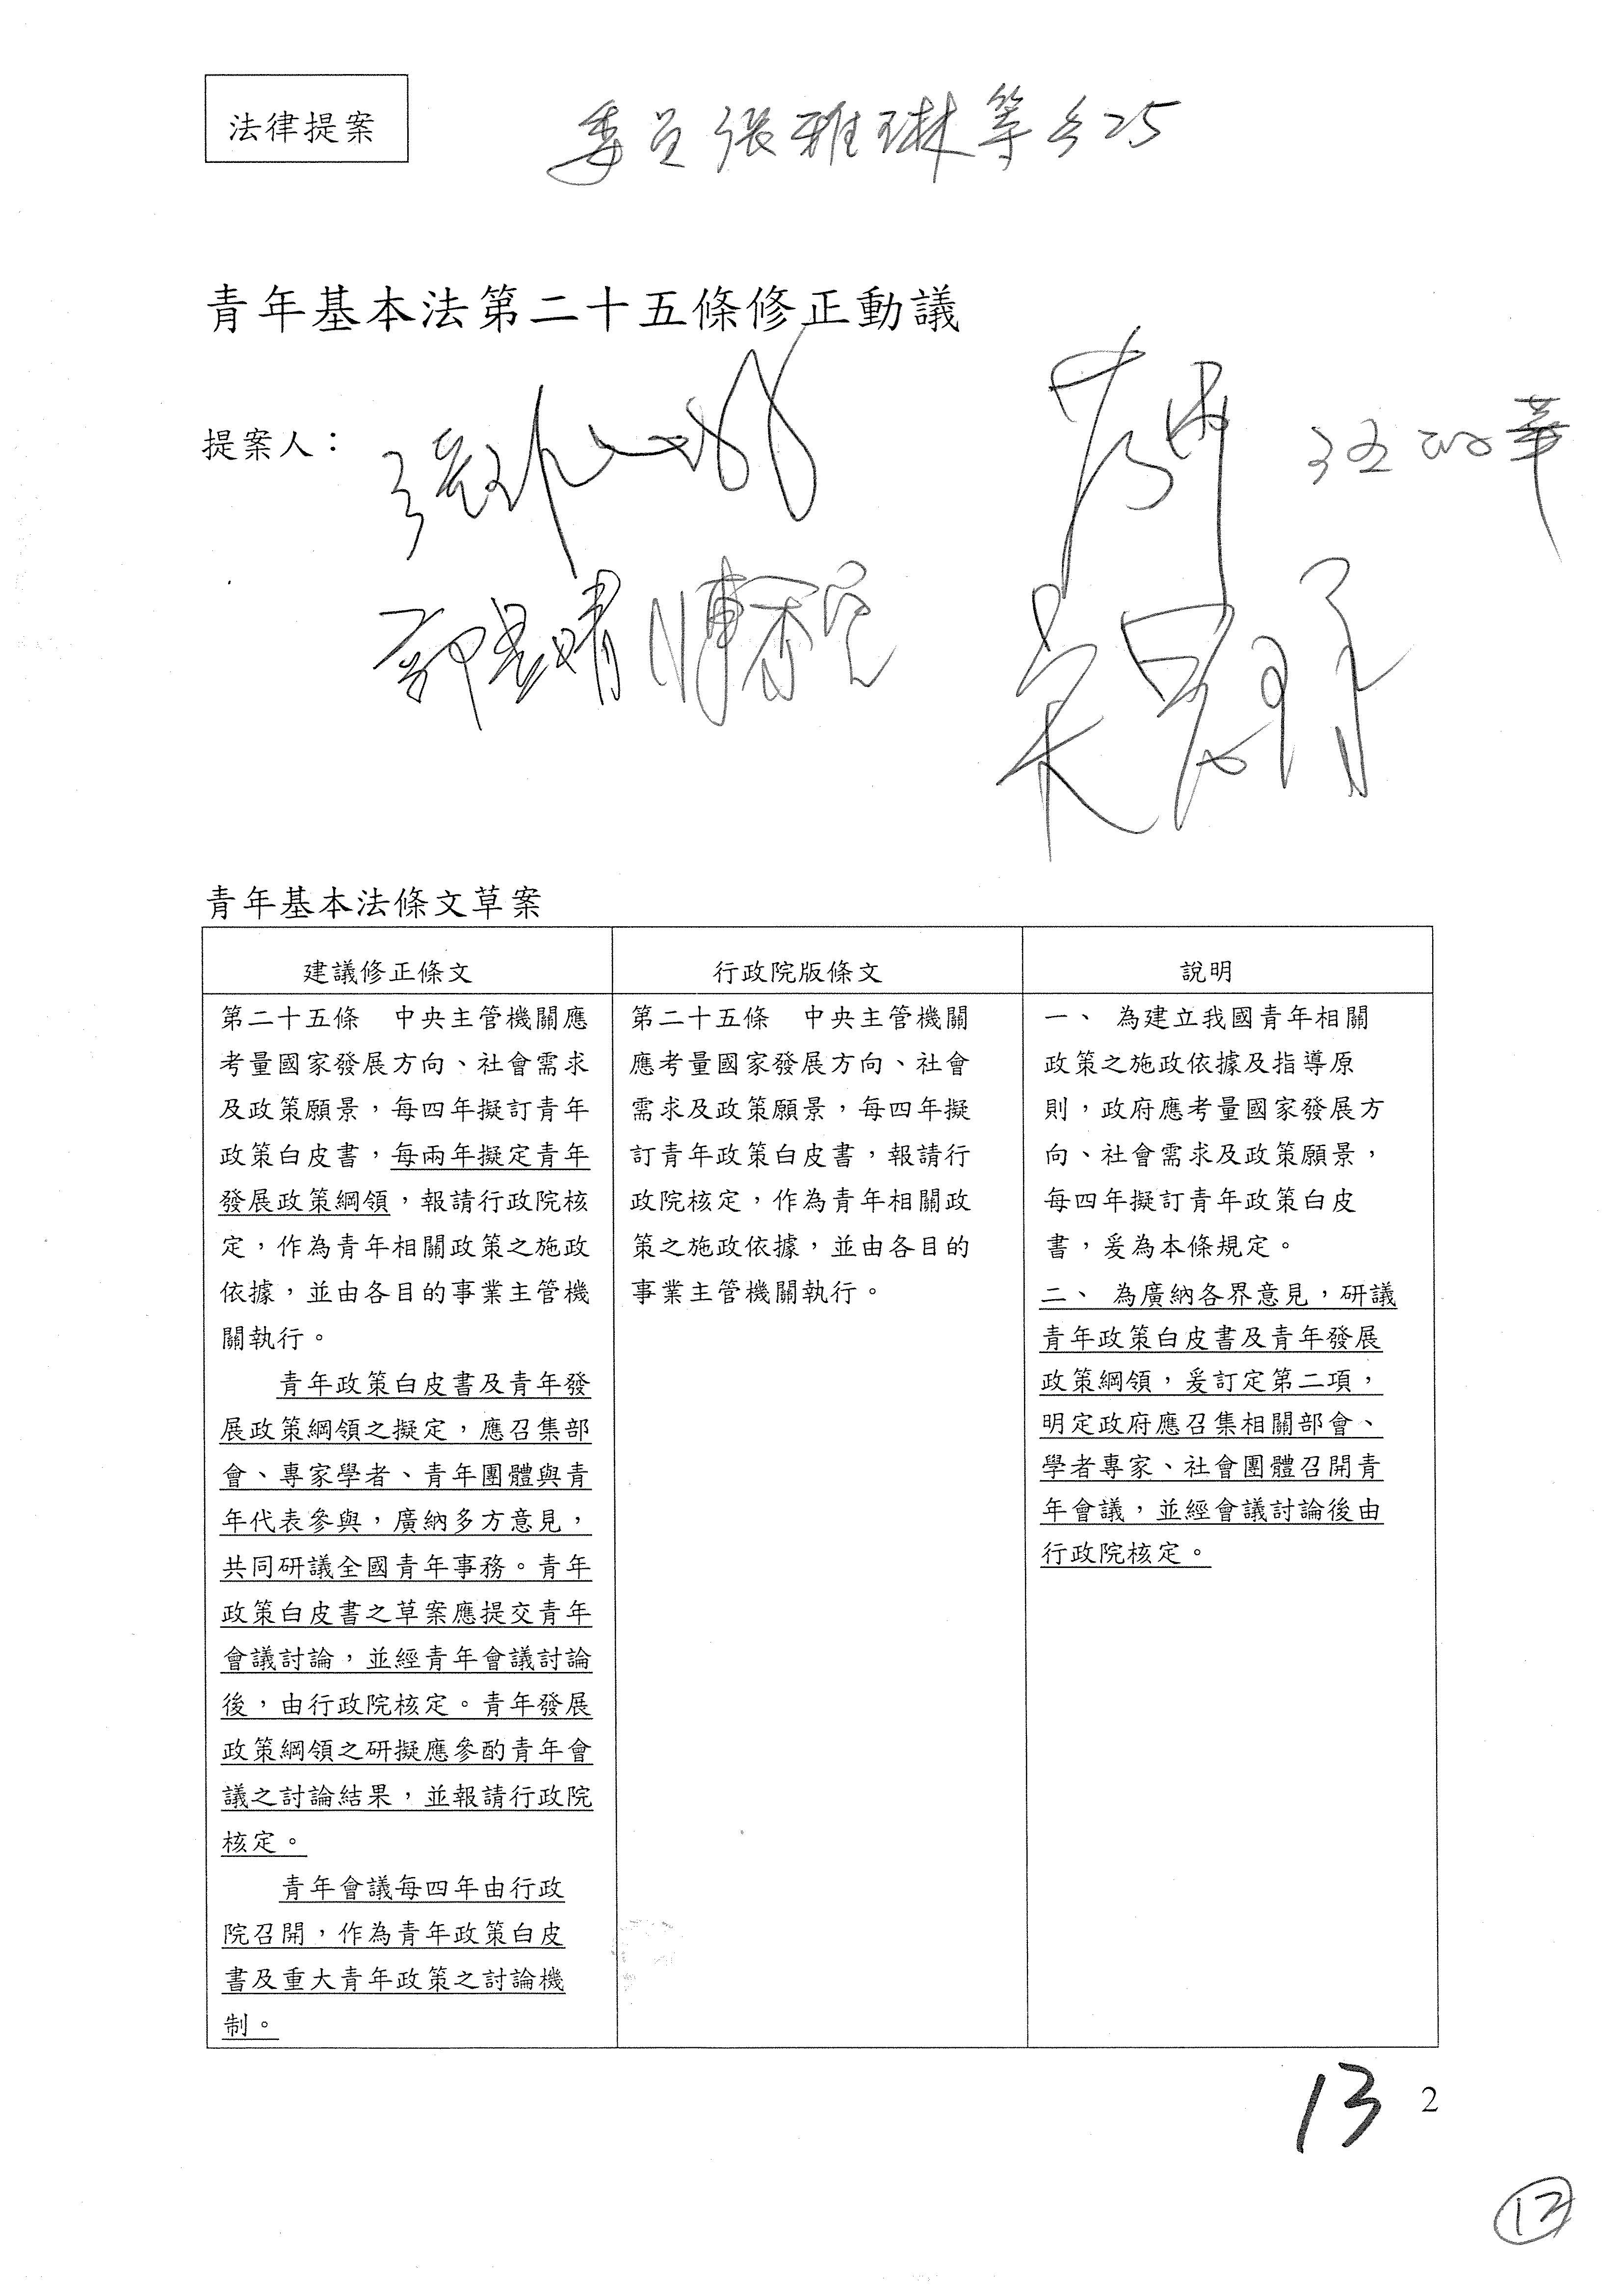 法律提案
委員張雅琳等 25
青年基本法第二十五條修正動議
提案人：
郭昱晴
吳思瑤
青年基本法條文草案
建議修正條文
第二十五條　中央主管機關應
考量國家發展方向、社會需求
及政策願景，每四年擬訂青年
政策白皮書，每兩年擬定青年
發展政策綱領，報請行政院核
定，作為青年相關政策之施政
依據，並由各目的事業主管機
關執行。
青年政策白皮書及青年發
展政策綱領之擬定，應召集部
會、專家學者、青年團體與青
年代表參與，廣納多方意見，
共同研議全國青年事務。青年
政策白皮書之草案應提交青年
會議討論，並經青年會議討論
後，由行政院核定。青年發展
政策綱領之研擬應參酌青年會
議之討論結果，並報請行政院
核定。
青年會議每四年由行政
院召開，作為青年政策白皮
書及重大青年政策之討論機
制。
行政院版條文
第二十五條　中央主管機關
應考量國家發展方向、社會
需求及政策願景，每四年擬
訂青年政策白皮書，報請行
政院核定，作為青年相關政
策之施政依據，並由各目的
事業主管機關執行。
說明
一、 為建立我國青年相關
政策之施政依據及指導原
則，政府應考量國家發展方
向、社會需求及政策願景，
每四年擬訂青年政策白皮
書，爰為本條規定。
二、 為廣納各界意見，研議
青年政策白皮書及青年發展
政策綱領，爰訂定第二項，
明定政府應召集相關部會、
學者專家、社會團體召開青
年會議，並經會議討論後由
行政院核定。
13
2